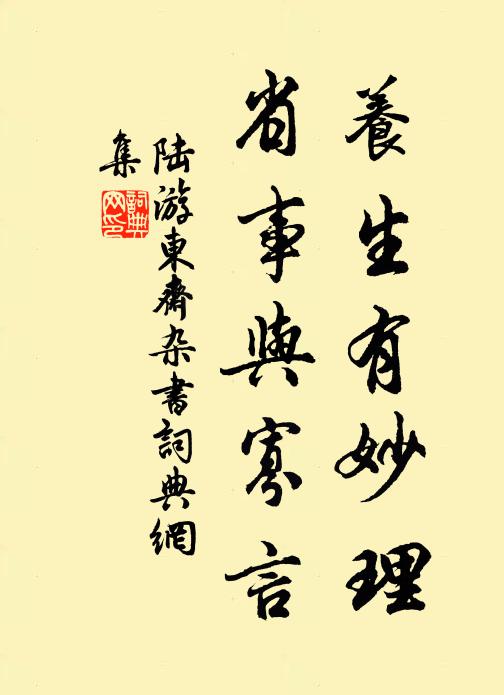 養生有妙理
省事與寡言
陆游東齋杂書詞典網
集
詞典
网印